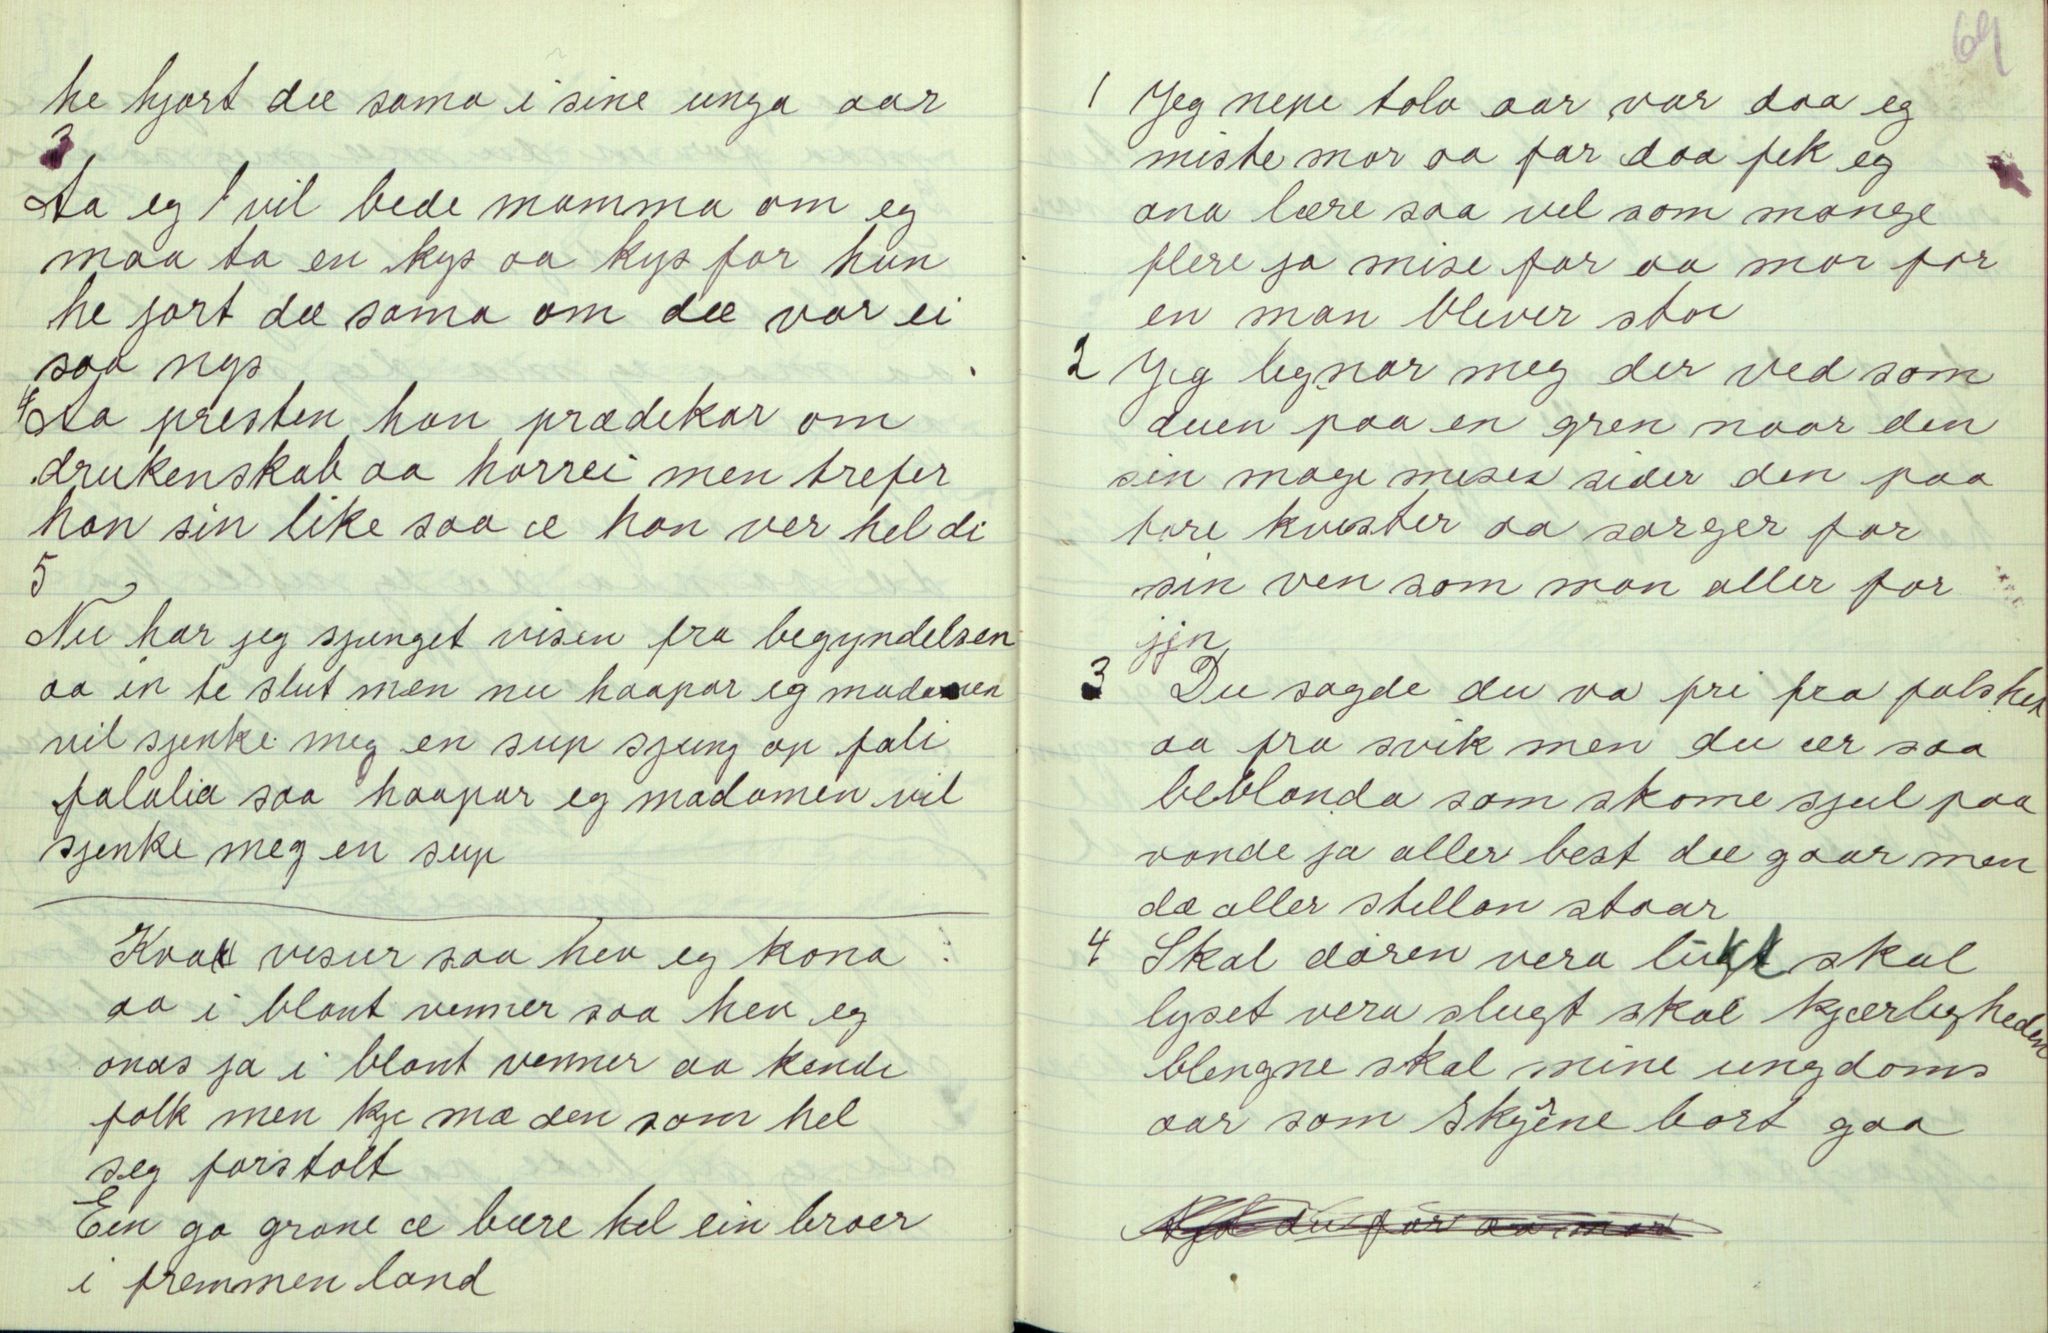 he hjort dæ sama i sine unga aar
3
Aa eg vil bede mamma om eg
maa ta en kys aa kys for hun
he jort dæ sama om dæ var ei
saa nys
4 Aa presten han prædekar om
drukenskab aa horrei men trefer
han sin like saa æ han ver hel di
5
Nu har jeg sjunget visen fra begyndelsen
aa in te slut men nu haapar eg madamen
vil sjenke meg en sup sjung op fali
falalia saa haapar eg madamen vil
sjenke meg en sup
Kvar visur saa hev eg kona
aa i blant venner saa hev eg
onas ja i blant venner aa kende
folk men kje mæ den som hel
seg forstolt
Een go grane æ bære hel ein broer
i fremmen land
64
1 Jeg nepe tolv aar var daa eg
miste mor aa far daa fek eg
ana lære saa vel som mange
flere ja mise far aa mor for
en man blever stor
2 Jeg legnar meg der ved som
duen paa en gren naar den
sin mage meses sider den paa
tore kvister aa sørger for
sin ven som man aller for
jjn
3 Du sagde du va fri fra falshet
aa fra svik men du ær saa
beblanda som skome sjul paa
vande ja aller best dæ gaar men
dæ aller stellan staar
4 Skal døren vera lukt skal
lyset vera slugt skal kjærligheden
blengne skal mine ungdoms
aar som skyene bort gaa
du far aa mor